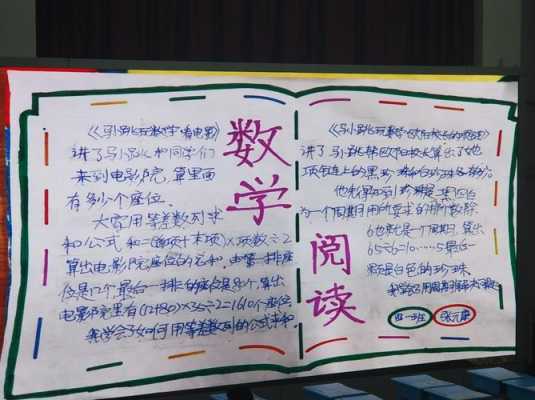 《马小跳玩数学·看电影》
讲了马小跳和同学们
来到电影院,算里面
有多少个座位。
大家用等差数列求
和公式 和=(首项+末项)×项数÷2
算出电影院座位的总和。由第一排座
位是12个,最后一排的座位是80个,算出
电影院里有(12+80)×35÷2=1610个座位
我学会了如何用等差数列的公式求和。
数学
阅读
《马小跳玩数学·欧阳校长的项链》
讲了马小跳帮欧阳校长算出了她
项链上的黑珍珠和白珍珠各
为一个周期,用所要求的排个数除
6也就是一个周期,算出
65÷6=10……5最后一
颗是白色的珍珠
我学会了用周期解决问题
四一班
张元